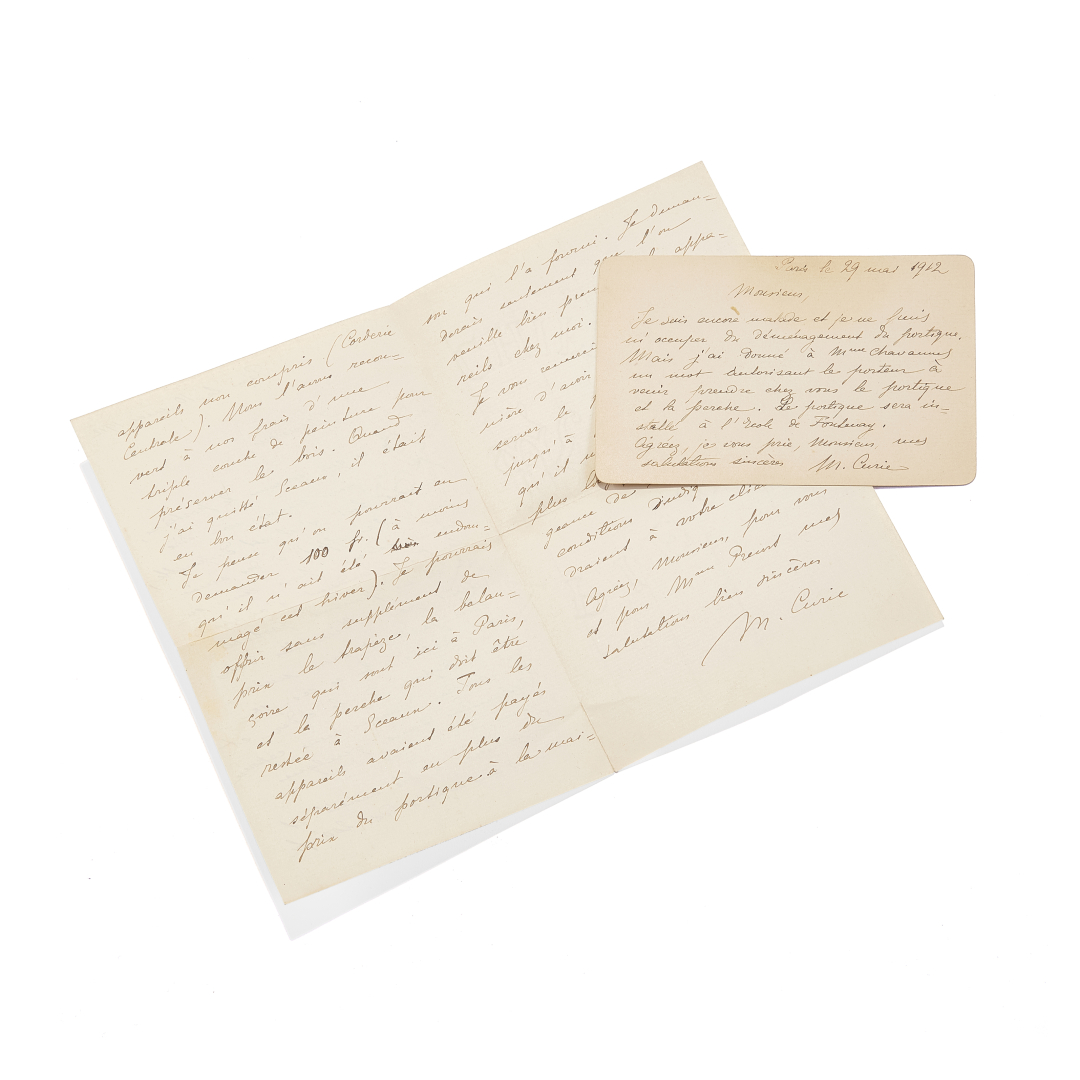 appareils non compris (Corderie
Centrale). Nous l'avons recou=
vert à nos frais d'une
triple couche de peinture pour
préserver le bois. Quand
j'ai quitté Sceaux, il était
en bon état.
Je pense qu'on pourrait en
demander 100 fr. (à moins
qu'il n'ait été endom=
magé cet hiver). Je pourrais
offrir sans supplément de
prix le trapèze, la balan=
çoire qui sont ici à Paris,
et la perche qui doit être
restée à Sceaux. Tous les
appareils avaient été payés
séparément en plus du
prix du portique à la mai=
son qui l'a fourni. Je deman=
derais seulement que l'on
veuille bien appa=
reils chez moi.
Je vous
nière d'avoir
server le
jusqu'à
qu'il
plus
geance des
conditions
draient à votre
Agréez, Monsieur, pour vous
et pour Mme Prevost mes
salutations bien sincères
M. Curie
Paris le 29 mai 1912
Monsieur,
Je suis encore malade et je ne puis
m'occuper du déménagement du portique.
Mais j'ai donné à Mme Chavannes
un mot autorisant le porteur à
venir prendre chez vous le portique
et la perche. Le portique sera in=
stallé à l'Ecole de Fontenay.
Agréez, je vous prie, Monsieur, mes
salutations sincères M. Curie